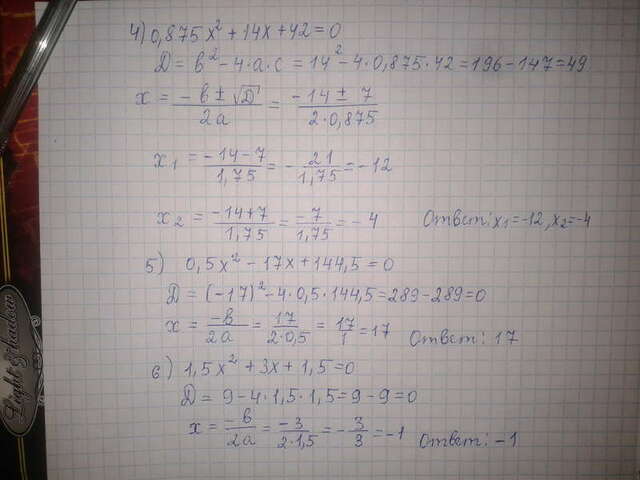 4) 0,875x² + 14x + 42 = 0
D = b² - 4·a·c = 14² - 4·0,875·42 = 196 - 147 = 49
x = (-b ± √D)/(2a) = (-14 ± 7)/(2·0,875)
x₁ = (-14-7)/(1,75) = - 21/(1,75) = -12
x₂ = (-14+7)/(1,75) = (-7)/(1,75) = -4 Ответ: x₁=-12, x₂=-4
5) 0,5x² - 17x + 144,5 = 0
D = (-17)² - 4·0,5·144,5 = 289 - 289 = 0
x = (-b)/(2a) = 17/(2·0,5) = 17/1 = 17 Ответ: 17
6) 1,5x² + 3x + 1,5 = 0
D = 9 - 4·1,5·1,5 = 9 - 9 = 0
x = (-b)/(2a) = (-3)/(2·1,5) = - 3/3 = -1 Ответ: -1
Light & shadow